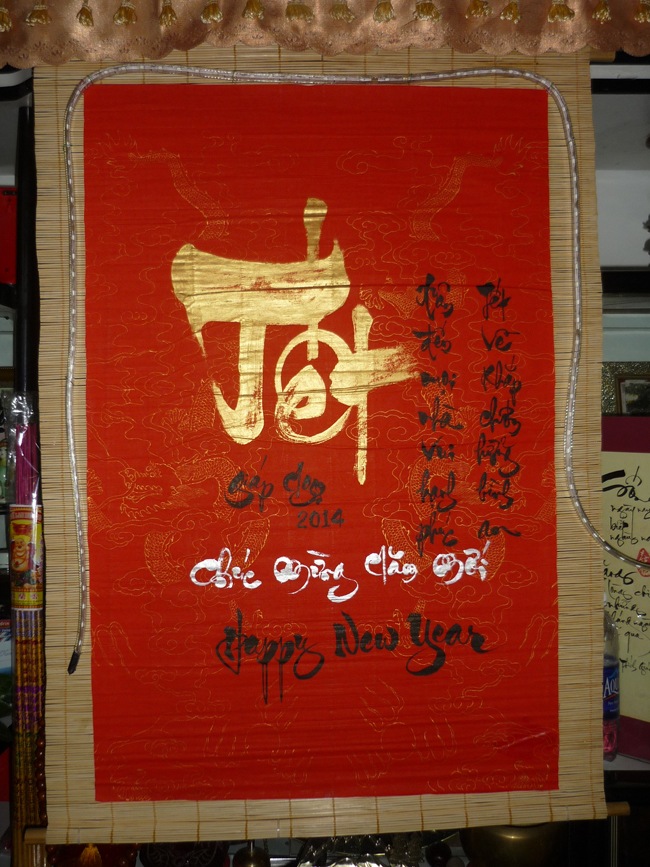 Tết
Xuân đến mọi nhà vui hạnh phúc
Tết về khắp chốn bình an
Giáp Ngọ
2014
chúc mừng năm mới
Happy New Year